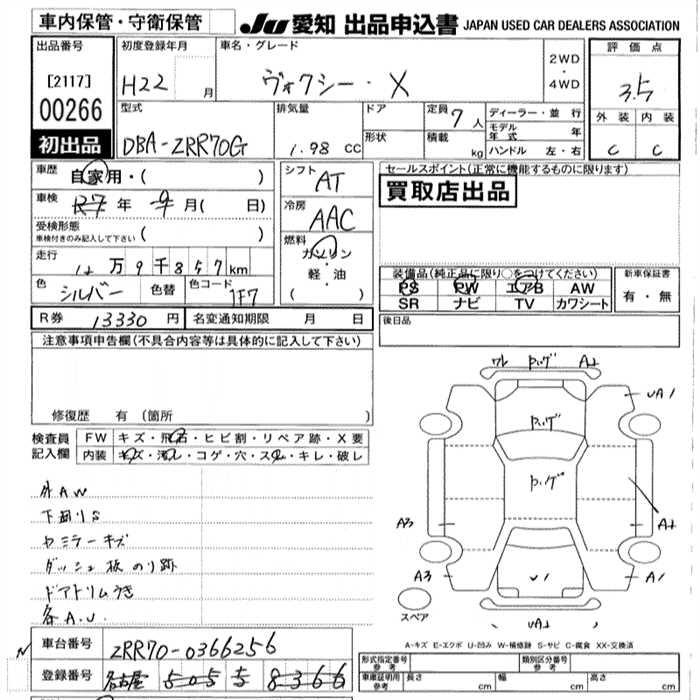 車内保管・守衛保管
JU 愛知 出品申込書 JAPAN USED CAR DEALERS ASSOCIATION
出品番号
[2117]
00266
初出品
初度登録年月
H22 月
車名・グレード
ヴォクシー・X
2WD
・
4WD
評価点
3.5
外装 内装
C C
型式
DBA-ZRR70G
排気量
1.98 CC
ドア
形状
定員 7人
積載 kg
ディーラー・並行
モデル年式 年
ハンドル 左・右
車歴 自家用・( )
車検 R7年 9月( 日)
受検形態
車検付きのみ記入して下さい ( )
走行 万9千857km
色 シルバー 色替 色コード 1F7
シフト AT
冷房 AAC
燃料 ガソリン
軽・油
( )
セールスポイント(正常に機能するものに限ります)
買取店出品
装備品(純正品に限り○をつけてください)
PS PW エアB AW
SR ナビ TV カワシート
新車保証書
有・無
R券 13330円 名変通知期限 月 日
後日品
注意事項申告欄(不具合内容等は具体的に記入して下さい)
修復歴 有 (箇所 )
検査員
記入欄
FW キズ・飛石・ヒビ割・リペア跡・X要
内装 キズ・汚レ・コゲ・穴・スレ・キレ・破レ
外AW
下廻りS
セミラーキズ
ダッシュ板のり跡
ドアトリムうき
各A.U.
ワレ P.ッグ A2
P.ッグ
UA1
P.ッグ
A3 A2
A3 U1 A1
スペア
UA2
A-キズ E-エクボ U-凹み W-補修跡 S-サビ C-腐食 XX-交換済
車台番号 ZRR70-0366256
登録番号 名古屋 505 す 8366
形式指定番号
参考
類別区分番号
参考
車庫証明用
参考
長さ cm 幅 cm 高さ cm